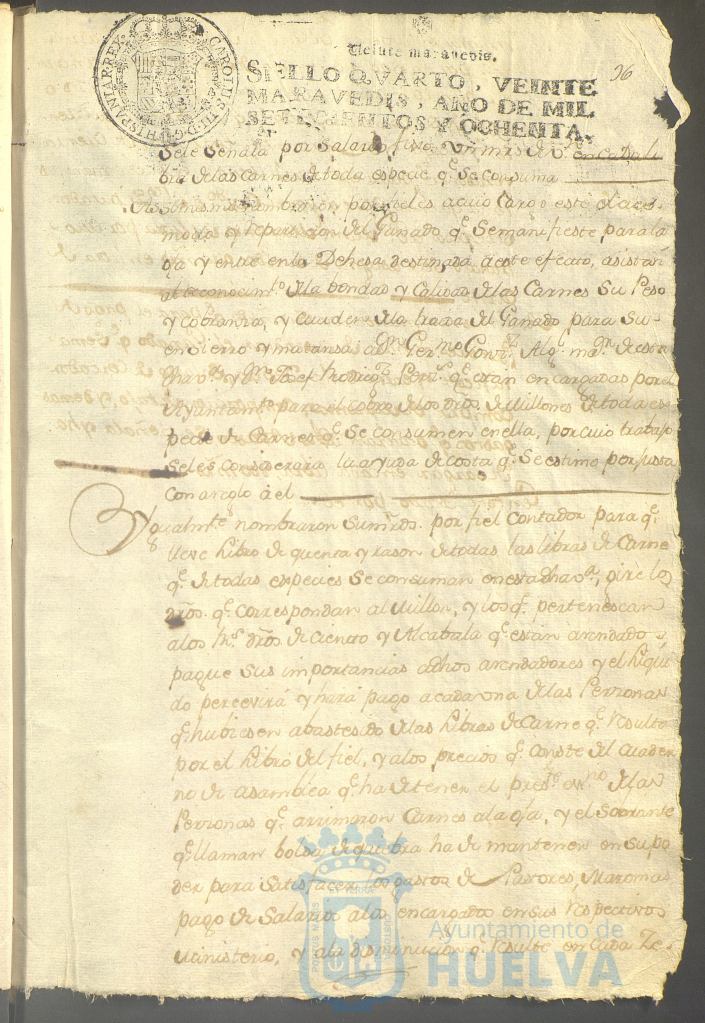 CAROLUS III D G HISPANIAR REX
Veinte maravedis.
96
SELLO QVARTO, VEINTE
MARAVEDIS, AÑO DE MIL
SETECIENTOS Y OCHENTA.
Sele Señala por Salario fixo Un mrs de
de las Carnes de toda especie q.e Se consuma
Asimismo nombraron por fieles a cuio Cargo este
y repartision del Ganado q.e Se manifieste para la
y entre en la Dehesa destinada a este efecto, asistan
al reconocim.to de la bondad y Calidad de las Carnes Su Peso
y cobranza, y cuiden de la traida del Ganado, para Su
ensierro y matansa a D.n Alg.l m.r de esta
y D.n Josef Rodrig.z q.e estan encargados por el
Ayuntam.to para el cobro de los dros. de Millones de toda es-
pecie de Carnes q.e Se consumen en ella, por cuio trabajo
Seles considerara la ayuda de costa q.e Se estime por justa
con arreglo á el
Ygualm.te nombraron Sus mrds. por fiel Contador para q.e
lleve Libro de quenta y rason de todas las libras de Carne
q.e de todas especies Se consuman en esta dha v.a, gire los
dros. q.e correspondan al Millon, y los q.e pertenescan
a los R.s dros de Ciento y Alcabala q.e estan arrendados,
pague Sus importancias a dhos arrendadores y el liqui-
do percevirá y hará pago a cada una de las Perzonas
q.e hubiesen abastesido de las Libras de Carne q.e resulte
por el Libro del fiel, y a los precios q.e conste del Cuader
no de asamblea q.e ha de tener el pres.te es.no de las
Perzonas q.e arrimaron Carnes a la oja, y el Sobrante
q.e llaman bolsa de quiebra ha de mantener en su po
der para Satisfacer los gastos de Pastores, Maromas
pago de Salarios a los encargados en sus respectivos
Ministerio, y a la disminucion q.e resulte en Cada
Ayuntamiento de
HUELVA